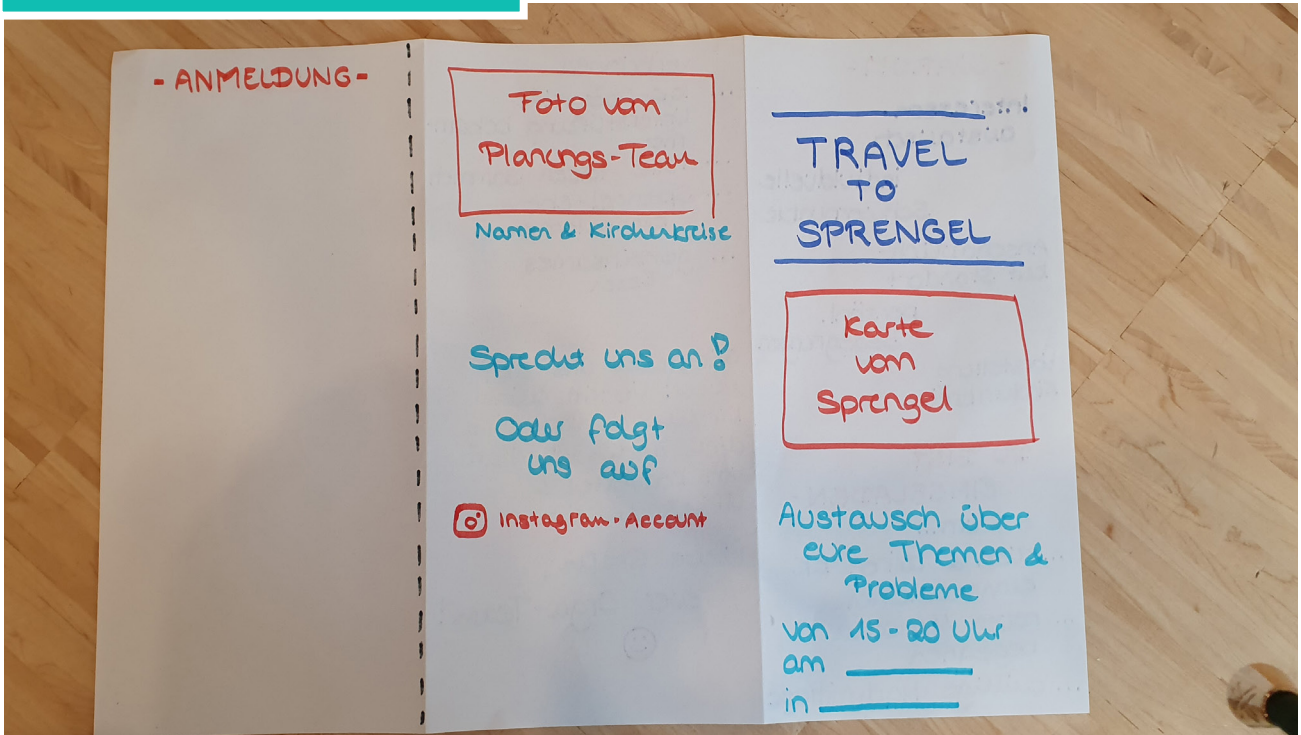 - ANMELDUNG-
Foto vom
Planungs-Team
Namen & Kirchenkreise
Sprecht uns an!
Oder folgt
uns auf
Instagram-Account
TRAVEL
TO
SPRENGEL
Karte
vom
Sprengel
Austausch über
eure Themen &
Probleme
von 15-20 Uhr
am
in